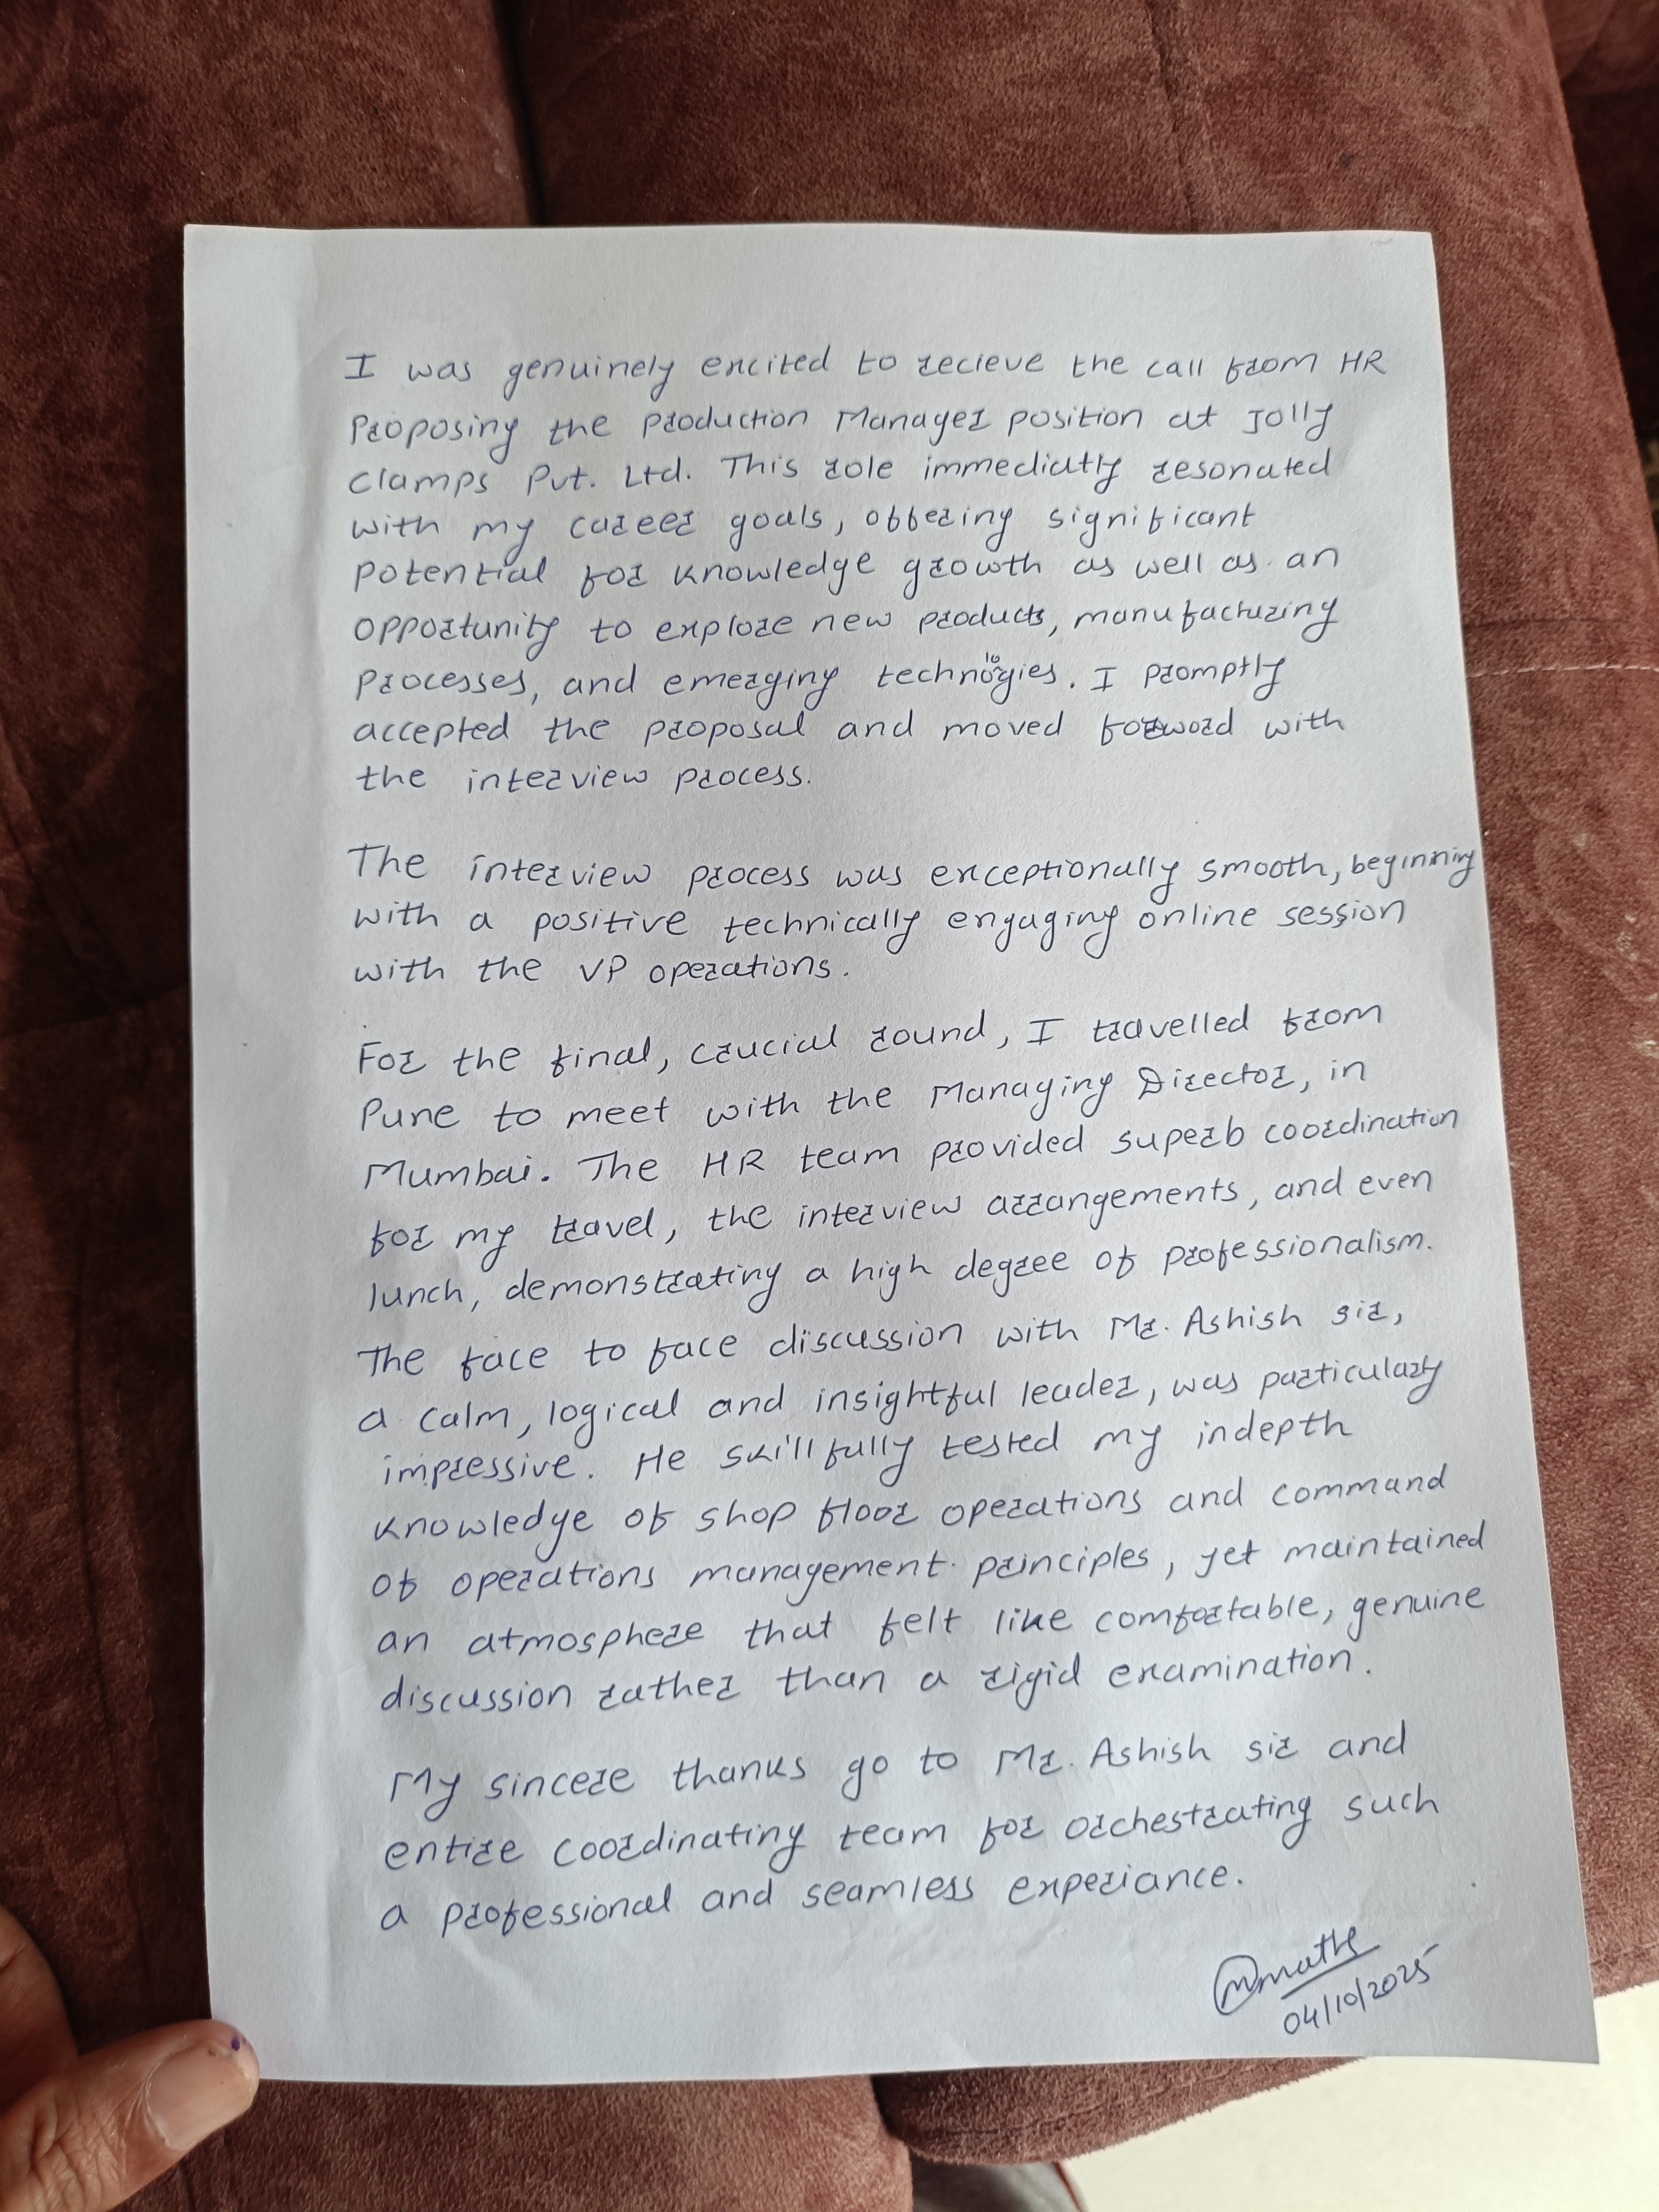 I was genuinely excited to recieve the call from HR
Proposing the Production Manager position at Jolly
Clamps Pvt. Ltd. This role immediatly resonated
with my career goals, offering significant
potential for knowledge growth as well as an
opportunity to explore new products, manufacturing
processes, and emerging technologies. I promptly
accepted the proposal and moved forword with
the interview process.
The interview process was exceptionally smooth, beginning
with a positive technically engaging online session
with the VP operations.
For the final, crucial round, I travelled from
Pune to meet with the Managing Director, in
Mumbai. The HR team provided superb coordination
for my travel, the interview arrangements, and even
lunch, demonstrating a high degree of professionalism.
The face to face discussion with Mr. Ashish sir,
a calm, logical and insightful leader, was particulary
impressive. He skillfully tested my indepth
knowledge of shop floor operations and command
of operations management principles, yet maintained
an atmosphere that felt like comfortable, genuine
discussion rather than a rigid examination.
My sincere thanks go to Mr. Ashish sir and
entire coordinating team for orchestrating such
a professional and seamless experiance.
04/10/2025